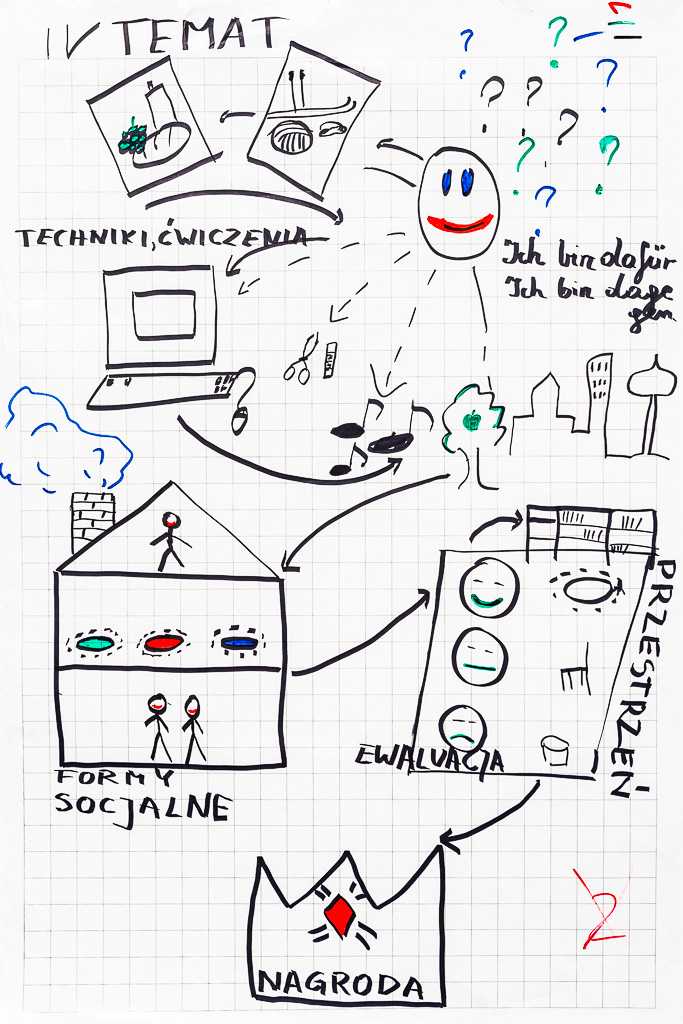 IV TEMAT
1
? ? ? ? ? ? ? ? ? ?
TECHNIKI, ĆWICZENIA
Ich bin dafür
Ich bin dage
gen.
PRZESTRZEŃ
EWALUACJA
FORMY
SOCJALNE
2
NAGRODA